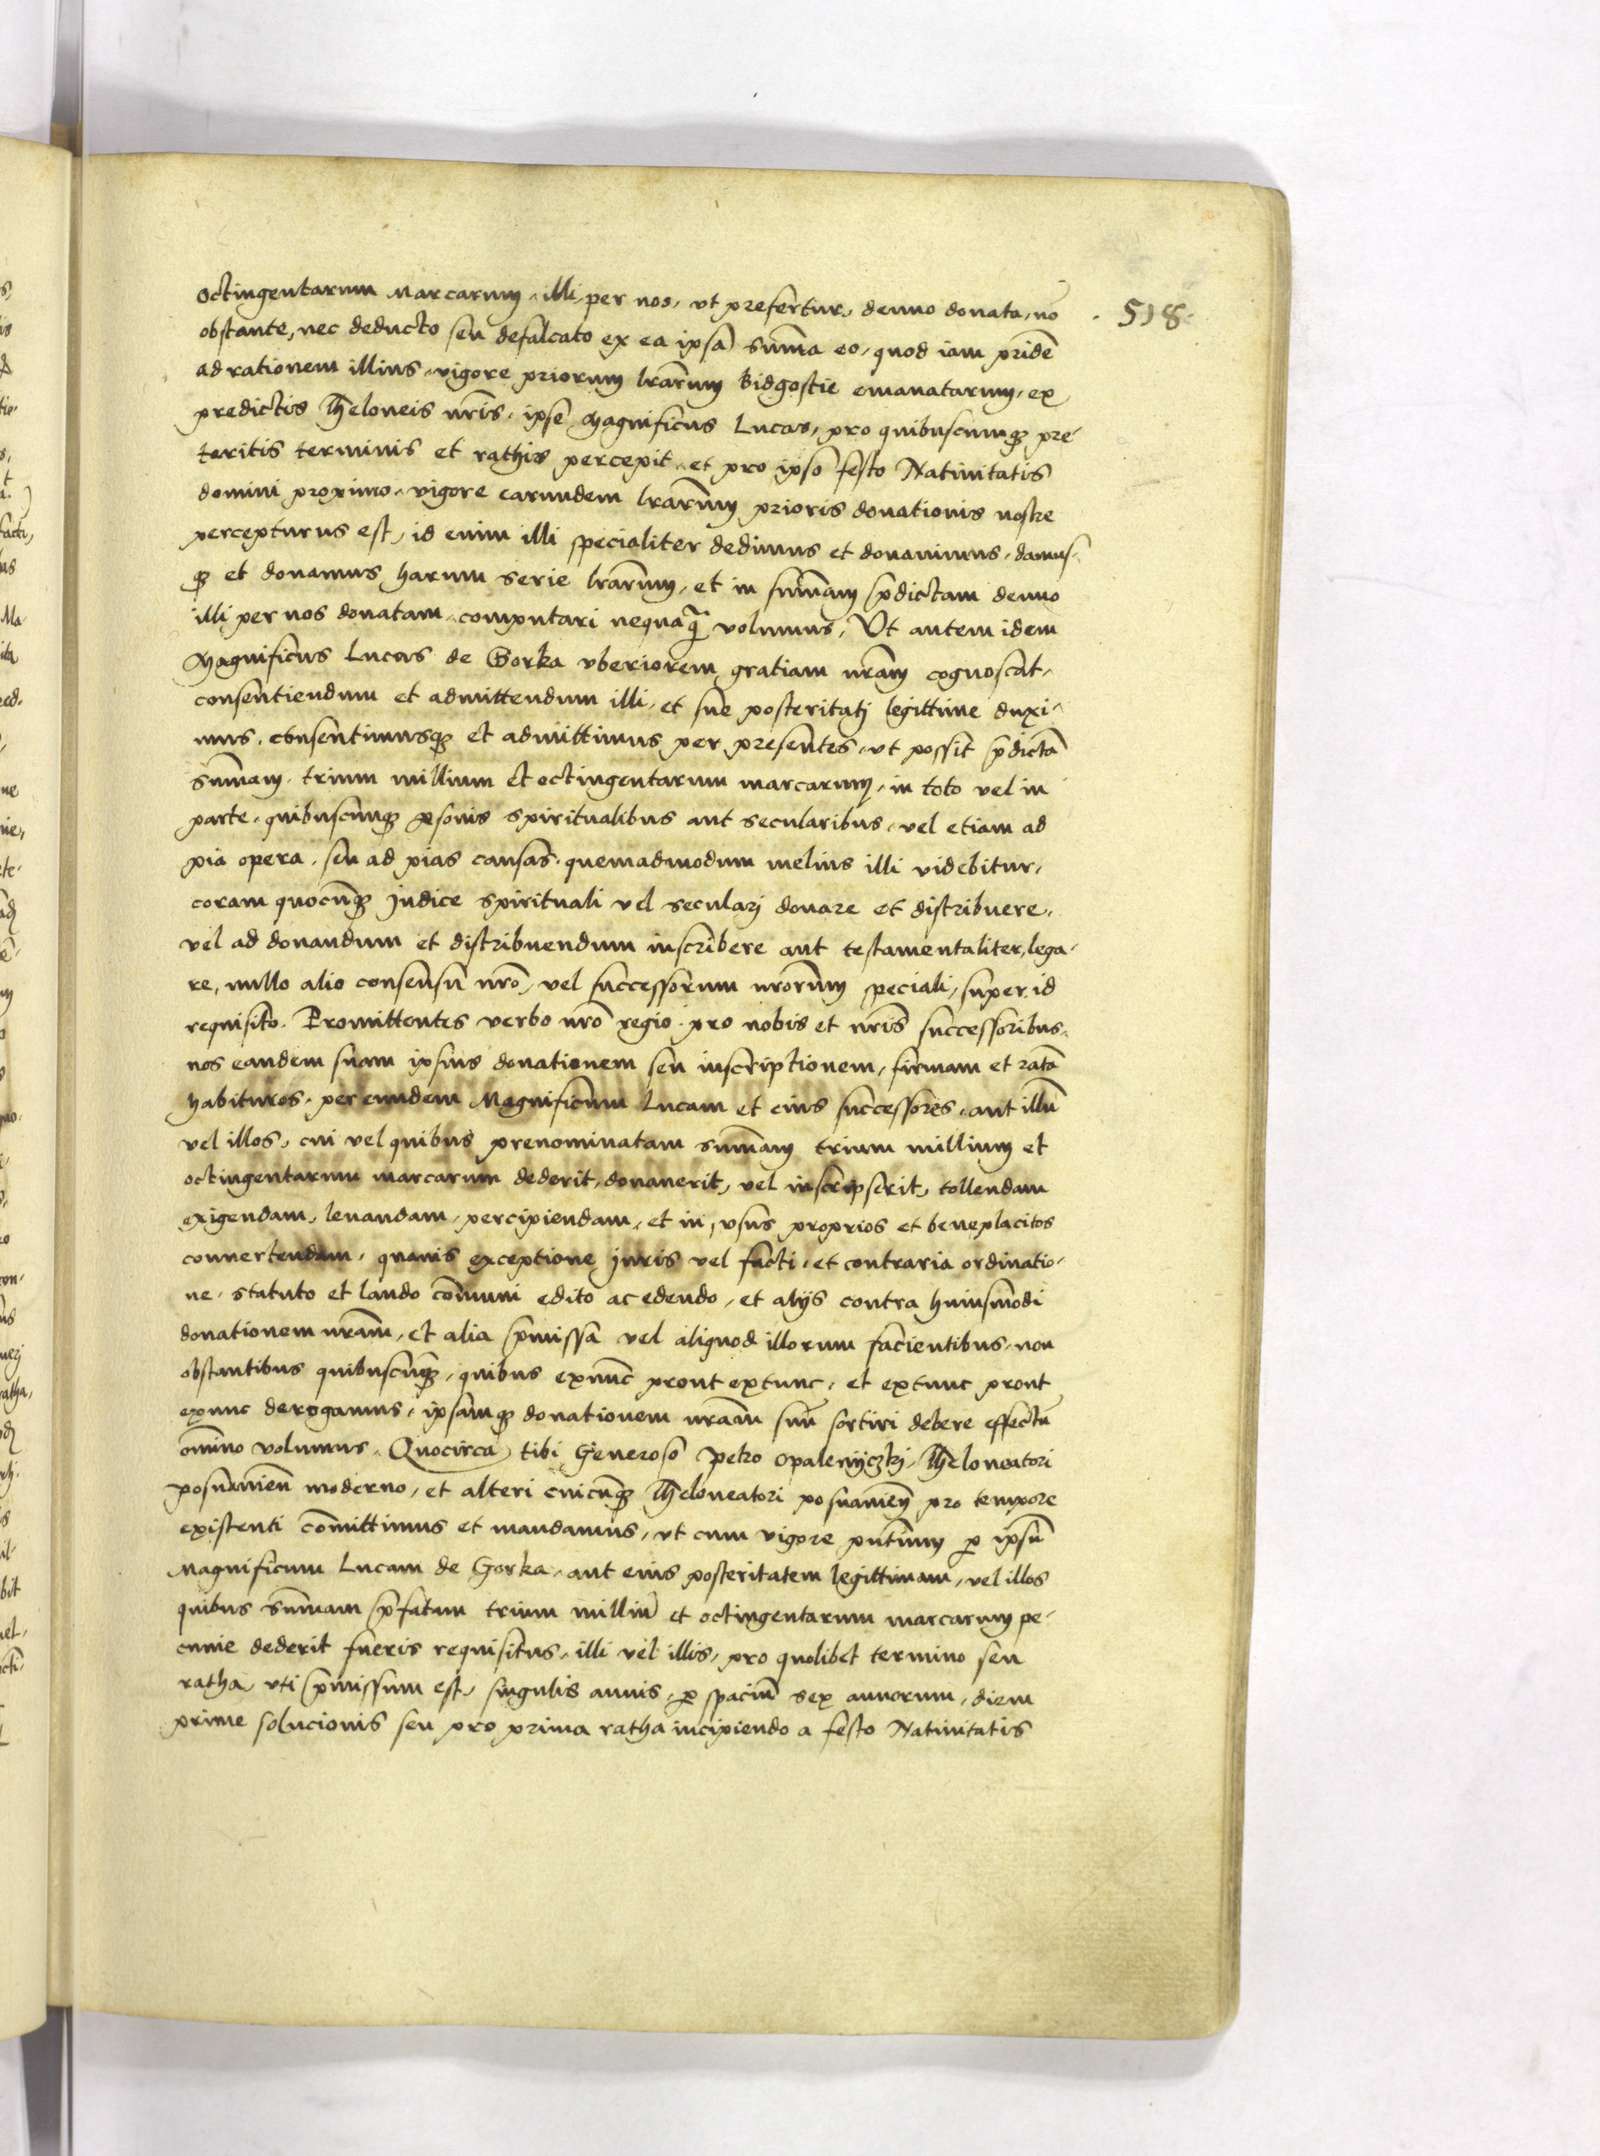 518
octingentarum Marcarum, illi per nos, vt prefertur, denuo donata, nō
obstante, nec deducto seu defalcato ex ea ipsa sum̄a eo, quod iam pridē
ad rationem illius, vigore priorum lrārum Bidgostie emanatarum, ex
predictis Theloneis nr̄is, ipse Magnificus Lucas, pro quibuscumqꝫ pre-
teritis terminis et rathis percepit, et pro ipso festo Natiuitatis
domini proximo, vigore earundem lrārum prioris donationis nostre
percepturus est, id enim illi specialiter dedimus et donauimus, damus-
qꝫ et donamus harum serie lrārum, et in summam p̄dictam denuo
illi per nos donatam, computari nequaq̄ volumus, Vt autem idem
Magnificus Lucas de Gorka vberiorem gratiam nrām cognoscat,
consentiendum et admittendum illi, et sue posteritati legittime duxi-
mus, consentimusqꝫ et admittimus per presentes, vt possit p̄dictā
sum̄am, trium millium et octingentarum marcarum, in toto vel in
parte, quibuscumqꝫ ꝑsonis spiritualibus aut secularibus, vel etiam ad
pia opera, seu ad pias causas, quemadmodum melius illi videbitur,
coram quocūqꝫ Judice spirituali vel seculari donare et distribuere,
vel ad donandum et distribuendum inscribere aut testamentaliter lega-
re, nullo alio consensu nrō, vel successorum nrōrum speciali, super id
requisito. Promittentes verbo nrō regio, pro nobis et nr̄is successoribus,
nos eandem suam ipsius donationem seu inscriptionem, firmam et ratā
habituros, per eundem Magnificum Lucam et eius successores, aut illū
vel illos, cui vel quibus prenominatam summam trium millium et
octingentarum marcarum dederit, donauerit, vel inscripserit, tollendam
exigendam, leuandam, percipiendam, et in vsus proprios et beneplacitos
conuertendam, quauis exceptione Juris vel facti, et contraria ordinatio-
ne, statuto et laudo com̄uni edito ac edendo, et alijs contra huiusmodi
donationem nrām, et alia p̄missa vel aliquod illorum facientibus, non
obstantibus quibuscūqꝫ, quibus exnūc prout extunc, et extunc prout
exnunc derogamus, ipsamqꝫ donationem nrām suū sortiri debere effectū
om̄ino volumus, Quocirca tibi Generoso Petro Opalenyczkj, Theloneatori
posnanien̄ moderno, et alteri cuicūqꝫ Theloneatori posnanien̄ pro tempore
existenti com̄ittimus et mandamus, vt cum vigore pn̄tium ꝑ ipsū
Magnificum Lucam de Gorka, aut eius posteritatem legittimam, vel illos
quibus summam p̄fatam trium milliū et octingentarum marcarum pe-
cunie dederit fueris requisitus, illi vel illis, pro quolibet termino seu
ratha, vti p̄missum est, singulis annis, ꝑ spaciū sex annorum, diem
prime solucionis seu pro prima ratha incipiendo a festo Natiuitatis